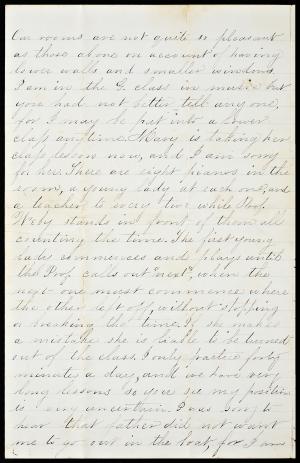 Our rooms are not quite so pleasant
as those above on account of having
lower walls and smaller windows.
I am in the G. class in music but
you had not better tell any one,
for I may be put into a lower
class any time. Mary is taking her
class lesson now, and I am sorry
for her. There are eight pianos in the
room, a young lady at each one, and
a teacher to every two while Prof.
stands in front of them all
counting the time. The first young
lady commences and plays until
the Prof. calls out "next", when the
next one must commence where
the other left off, without stopping
or breaking the time. If she makes
a mistake she is liable to be turned
out of the class. I only practice forty
minutes a day, and we have very
long lessons so you see my position
is very uncertain. I was sorry to
hear that father did not want
me to go out in the boat, for I am